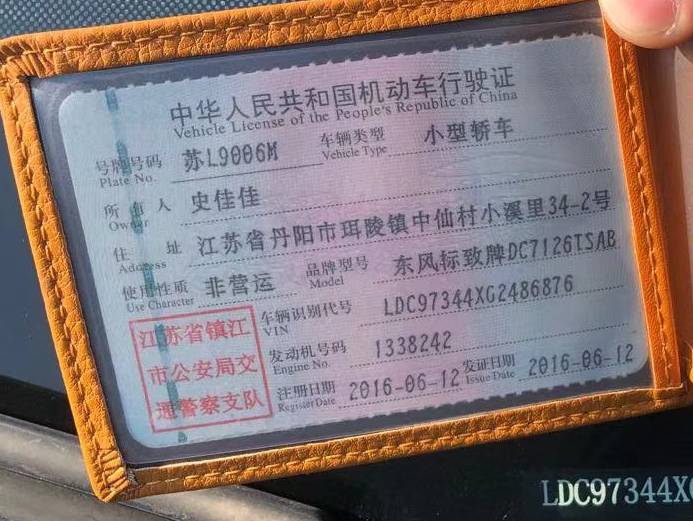 中华人民共和国机动车行驶证
Vehicle License of the People's Republic of China
号牌号码 苏L9006M 车辆类型 小型轿车
Plate No. Vehicle Type
所有人 史佳佳
Owner
住址 江苏省丹阳市珥陵镇中仙村小溪里34-2号
Address
使用性质 非营运 品牌型号 东风标致牌DC7126TSAB
Use Character Model
江苏省镇江
市公安局交
通警察支队
车辆识别代号 LDC97344XG2486876
VIN
发动机号码 1338242
Engine No.
注册日期 2016-06-12 发证日期 2016-06-12
Register Date Issue Date
LDC97344X